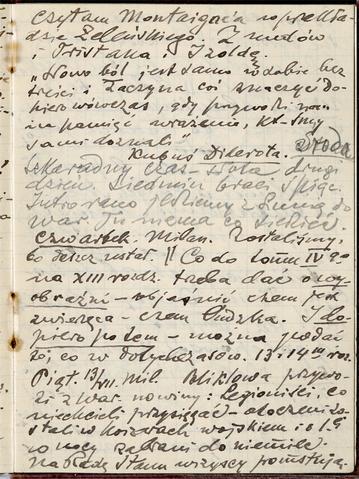 czytam Montaigne'a w przekła-
dzie Żeleńskiego. Z nudów
i Tristana i Izoldę.
"Słowo ból jest samo w sobie bez
treści i zaczyna coś znaczyć do-
piero wówczas, gdy przywodzi nam
na pamięć wrażenia, któreśmy
sami doznali"
Kubuś Diderota. Środa
Szkaradny czas – słota drugi
dzień. Siedmiu braci śpiąc.
Jutro rano jedziemy z do
War. Tu niema co siedzieć.
Czwartek. Milan. Zostaliśmy,
bo deszcz ustał. || Co do tomu IV go
na XIII rozdz. trzeba dać
obraźni – wyjaśnić czem jest
zwierzęca – czem ludzka. I do-
piero potem – można podać
to, co w dotychczasów. 13 i 14 m roz.
Piąt. 13/VII. Mil. przywo-
zi z War. nowiny: Legioniści, co
niechcieli przysięgać – otoczeni zo-
stali w koszarach wojskiem i o 1 g
w nocy zabrani do niemiec.
na Radę Stanu wszyscy pomstują.